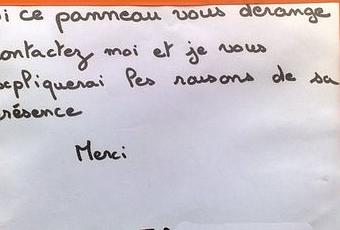 i ce panneau vous derange
ontactez moi et je vous
xpliquerai les raisons de sa
résence
Merci